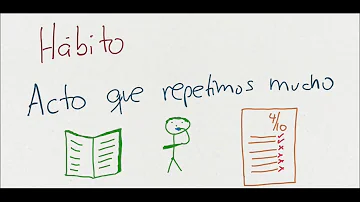 Hábito
Acto que repetimos mucho
4/10